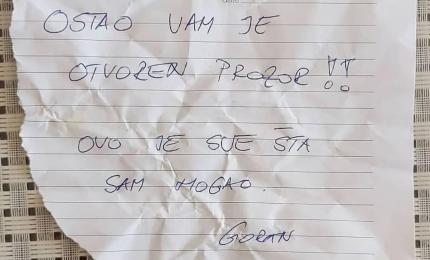 OSTAO VAM JE
OTVOREN PROZOR!!
OVO JE SVE ŠTA
SAM MOGAO.
GORAN